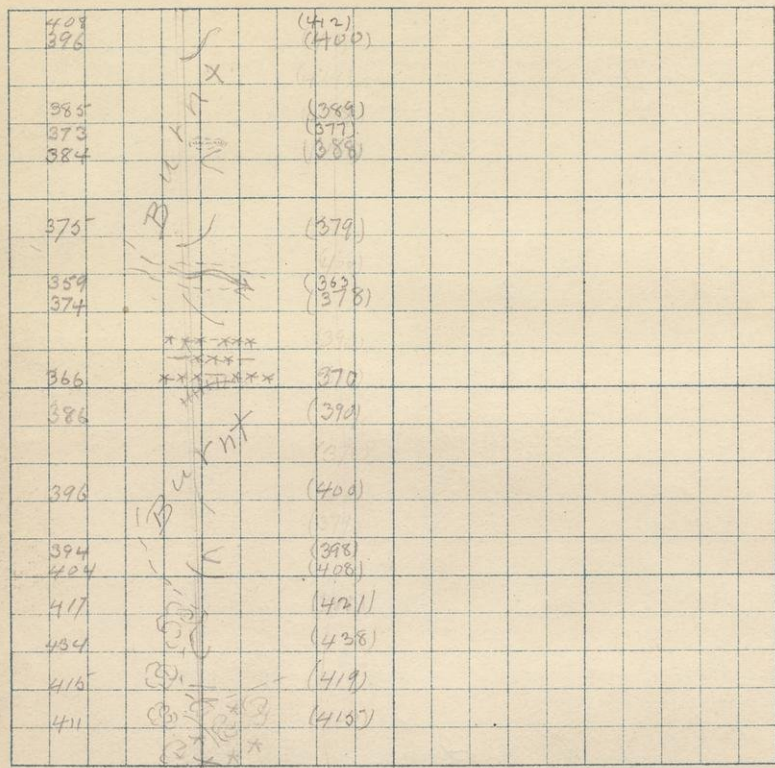 408 (412)
396 (400)
985 (389)
373 (377)
384 (388)
Burnt
375 (379)
359 (363)
374 (378)
366 370
386 (390)
Burnt
396 (400)
394 (398)
404 (408)
417 (421)
434 (438)
415 (419)
411 (415)